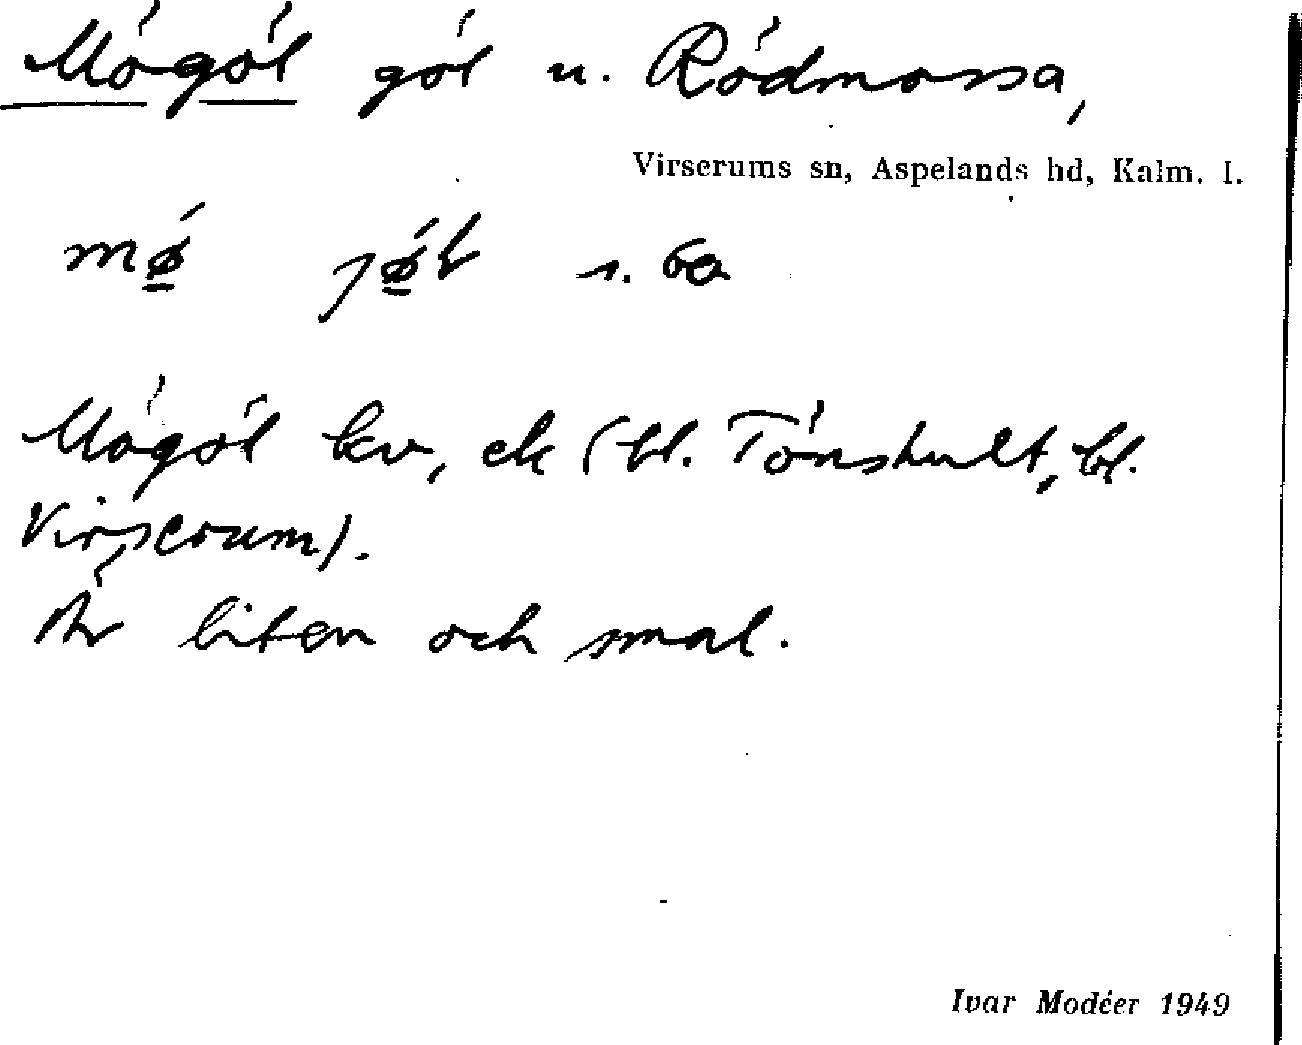 Mögöl göl u. Rödmossa,
Virserums sn, Aspelands hd, Kalm. l.
mǿ jǿl
Mögöl kv, ek (bl. Tönshult, bl.
Virserum).
Är liten och smal.
Ivar Modéer 1949